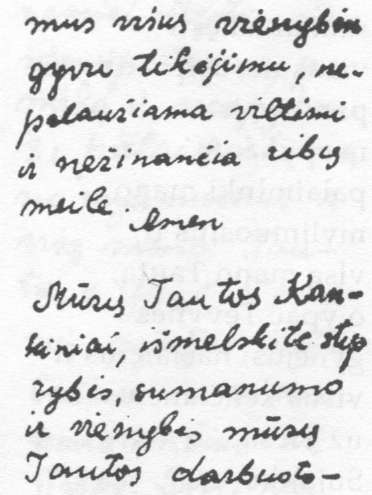 mus visus vienybėn
gyvu tikėjimu, ne-
palaužiama viltimi
ir nežinančia ribų
meile. Amen
Mūsų Tautos Kan-
kiniai, išmelskite stip
rybės, sumanumo
ir vienybės mūsų
Tautos darbuoto-